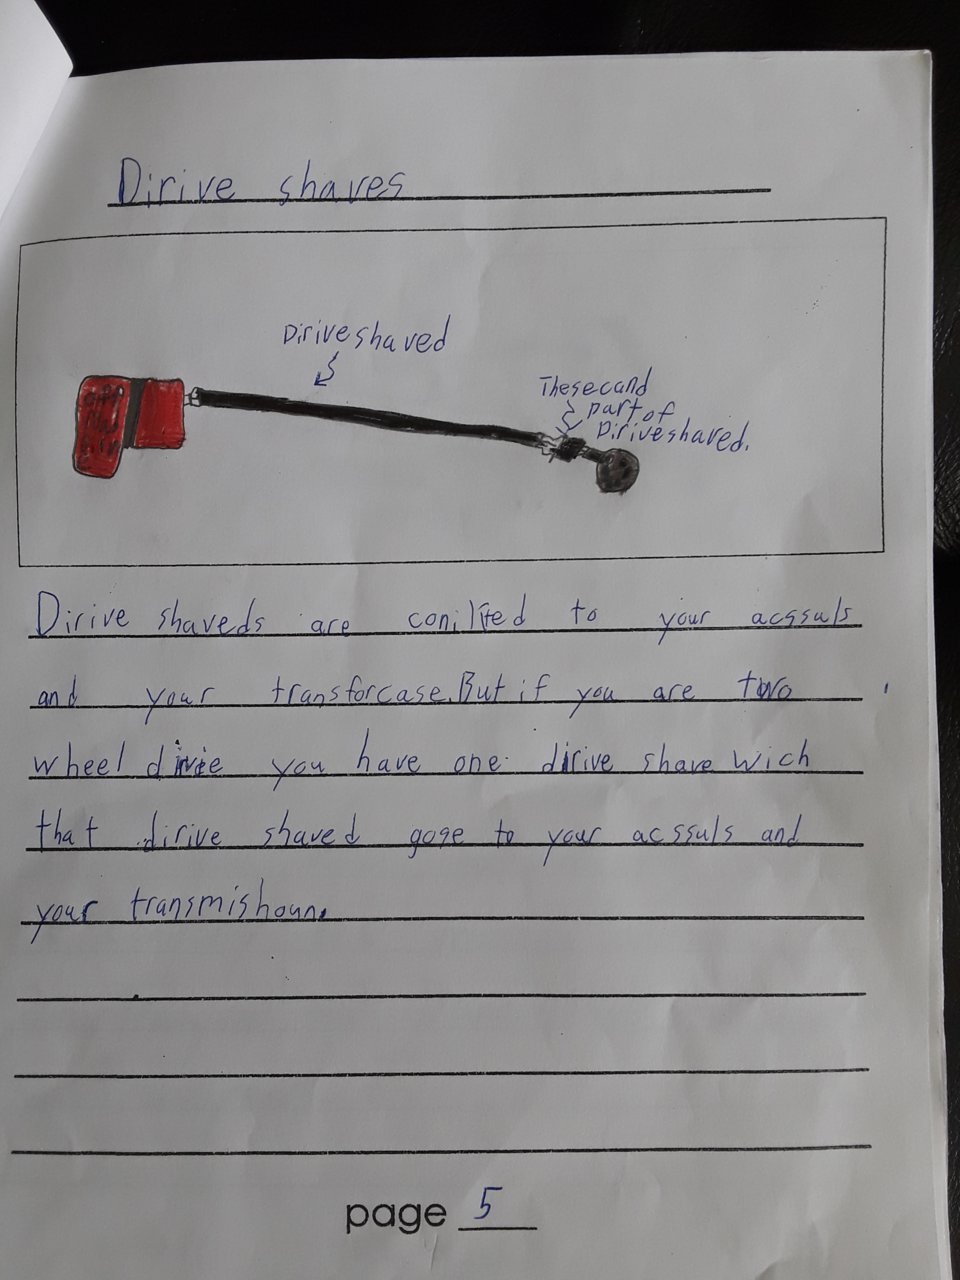 Dirive shaves
Diriveshaved
Thesecand
part of
Diriveshaved.
Dirive shaveds are conilted to your acssuls
and your transforcase. But if you are two
wheel dirvie you have one dirive shave wich
that dirive shaved gose to your acssuls and
your transmishoun.
page 5